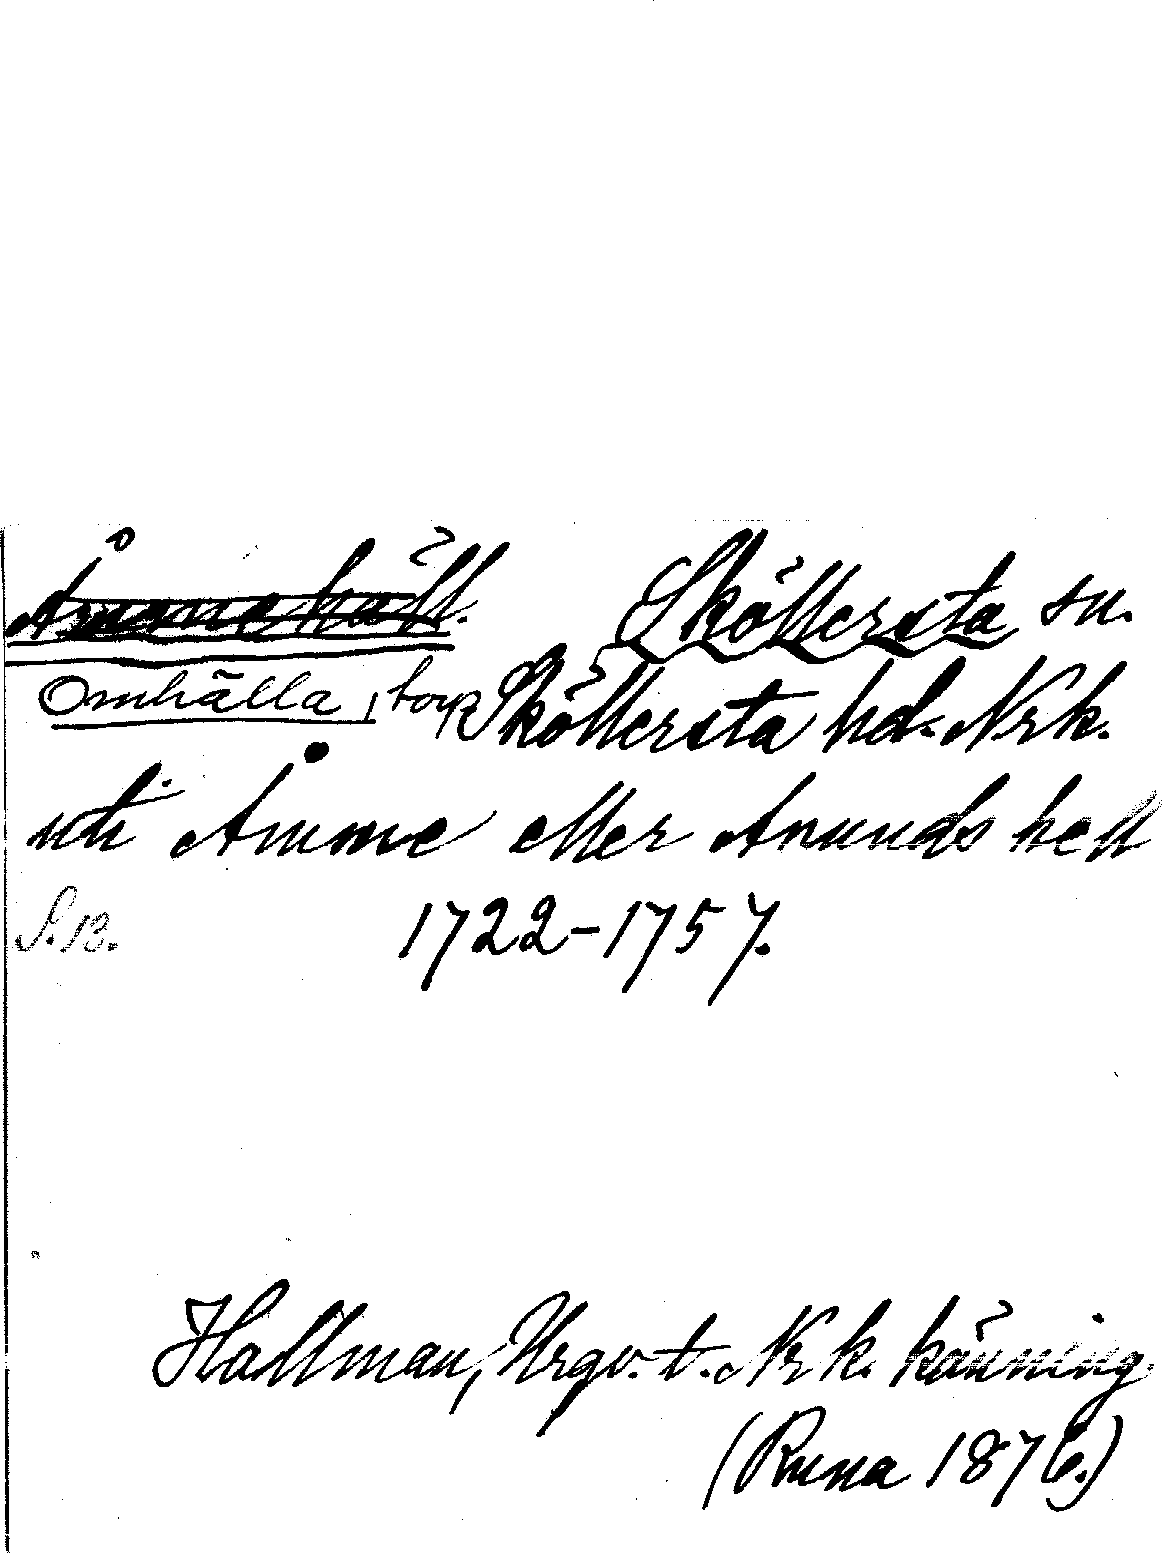 Åmme häll. Sköllersta sn.
Omhälla, torp Sköllersta hd. Nrk.
uti Åmme eller Anunds hell
S. 13. 1722-1757.
Hallman, Urgv. t. Nrk. känning.
(Runa 1876.)